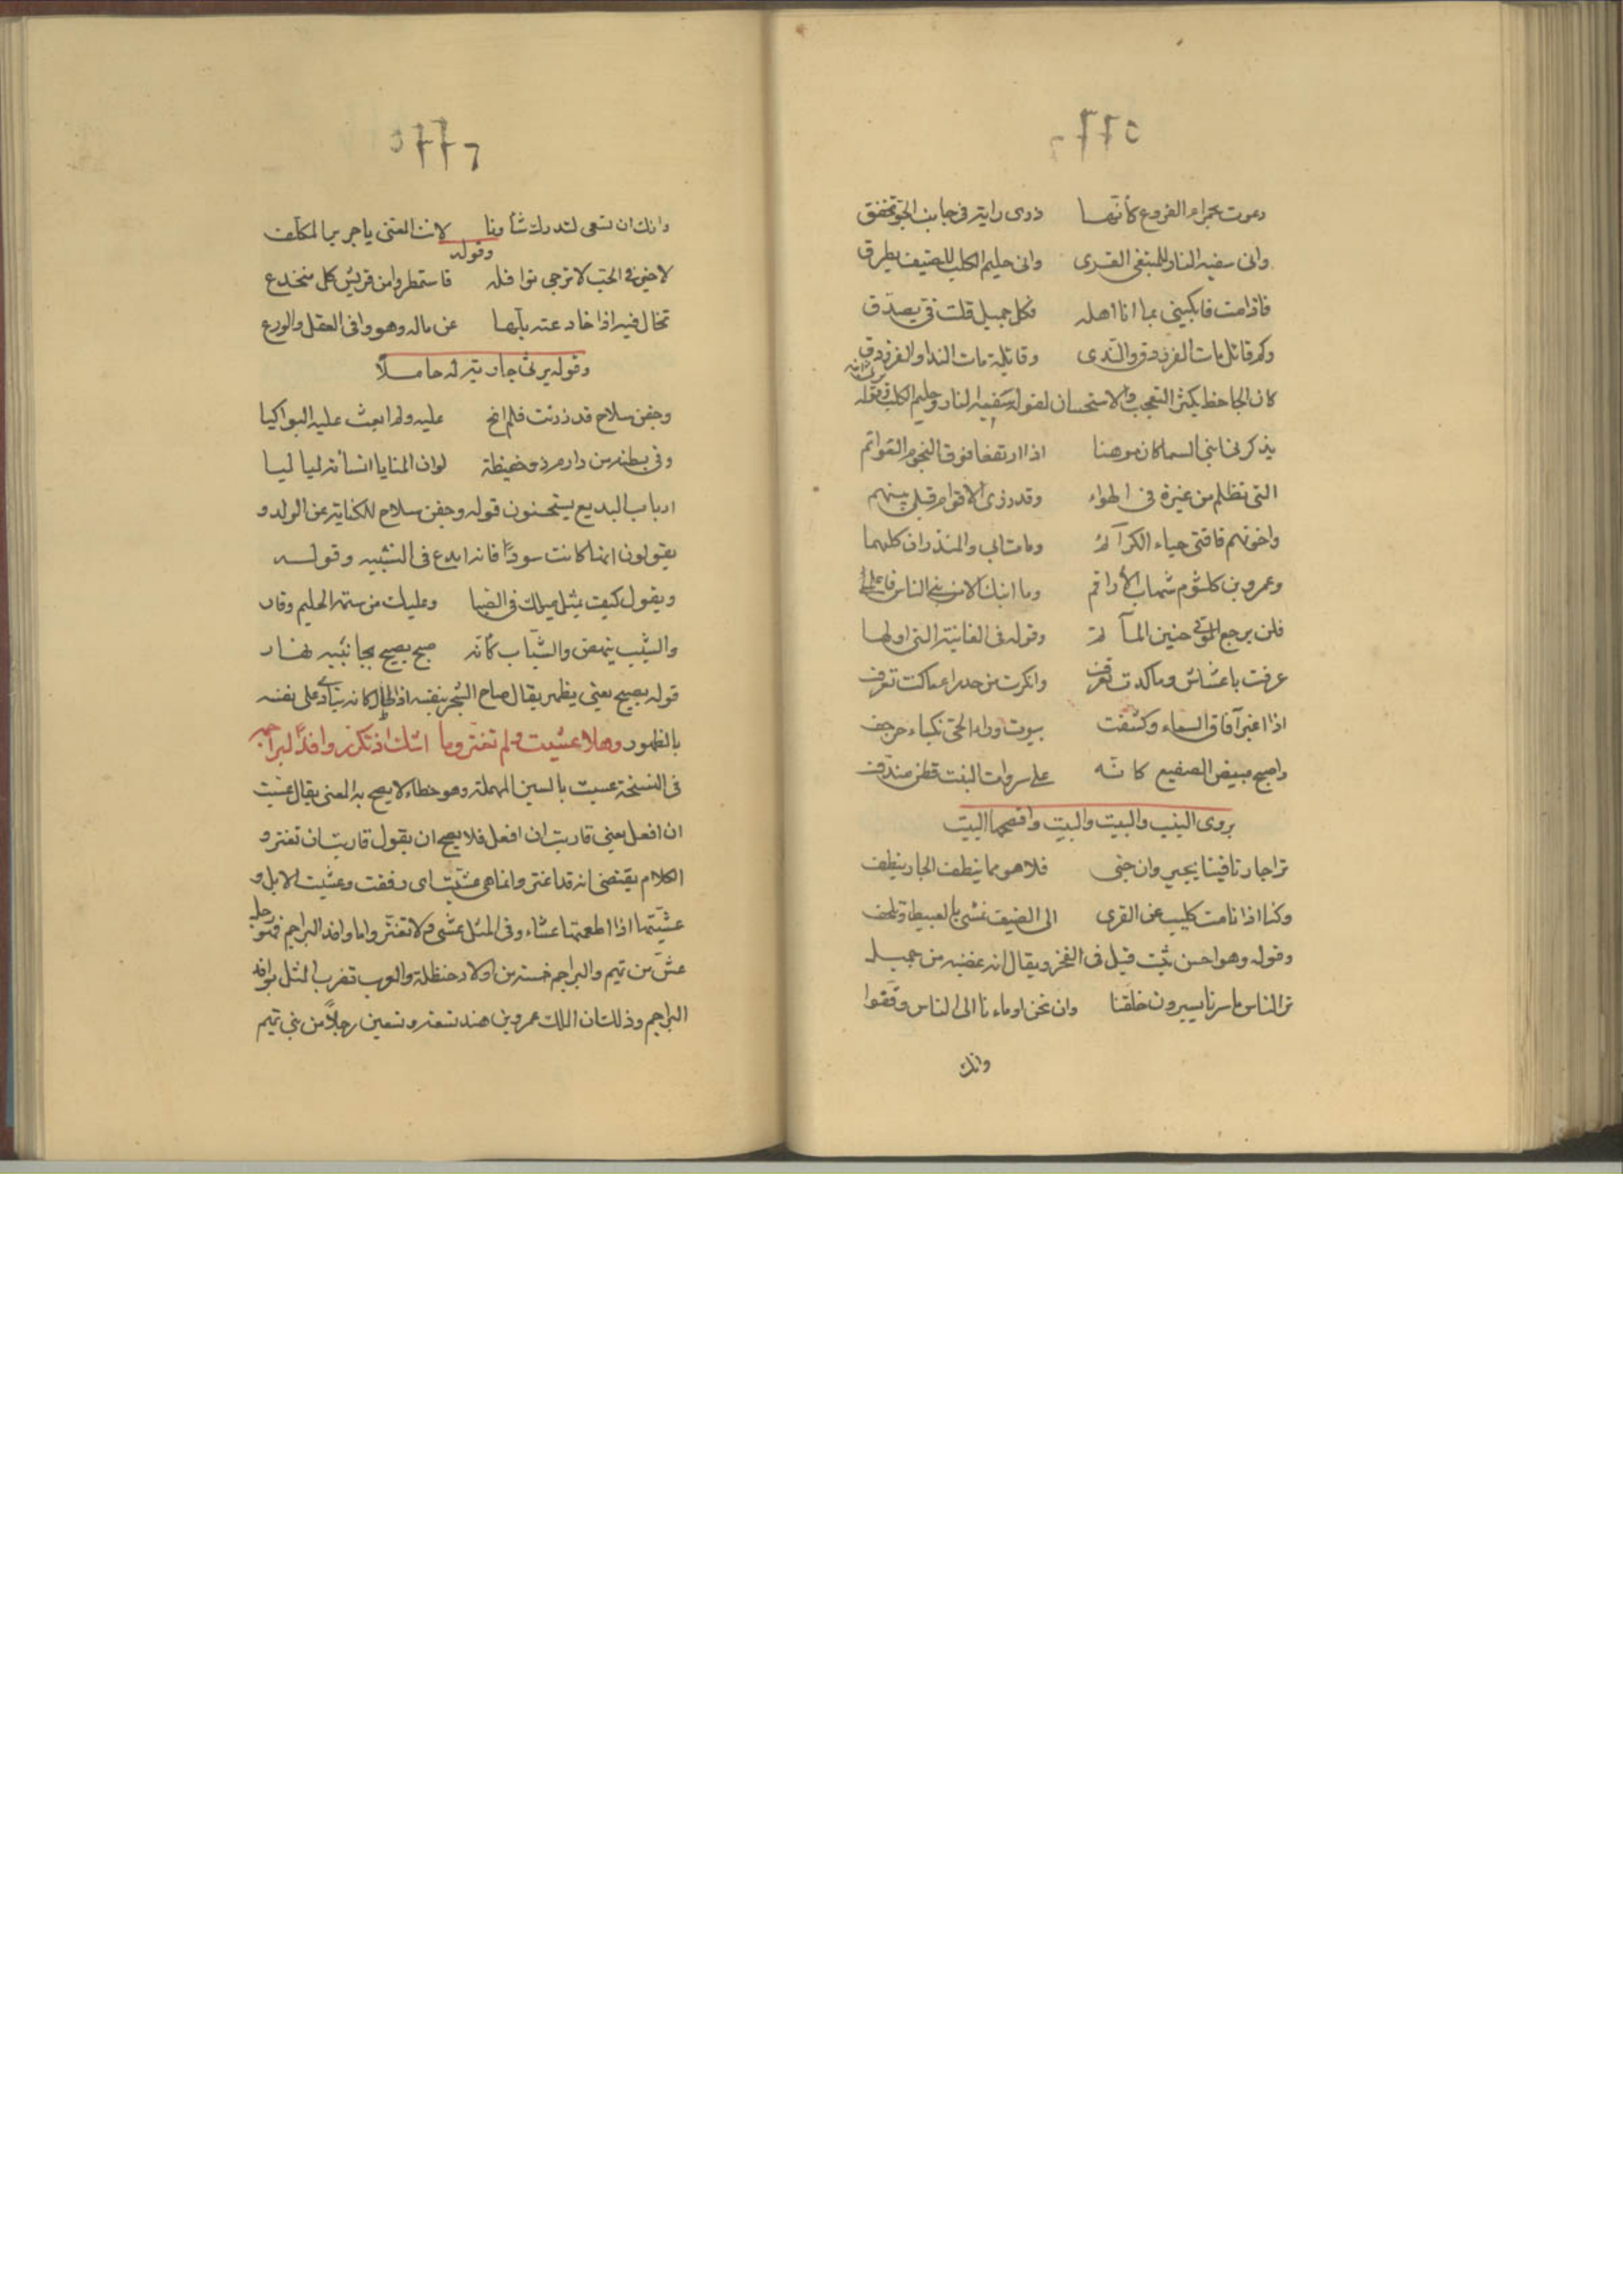 ٢٢٥
دعوت بحمراء الفروع كأنها ذرى راية في جانب الجو تخفق
وانى سفيه النار للمبتغى القرى وانى حليم الكلب للضيف يطرق
فاذا مت فابكينى بما انا اهله فكل جميل قلت فى يصدق
وكم قائل مات الفرزدق والندى وقائلة مات الندا والفرزدق
كان الجاحظ يكثر التعجب والاستحسان لقوله سفيه النار وحليم الكلب وقوله
يذكرنى ابنى السماكان موهنا اذا ارتفعا فوق النجوم القواتم
وقد رزى الاقوام قبلى ببنيهم
واخوتهم فاقنى حياء الكرائم ومات ابى والمنذران كلاهما
وعمرو بن كلثوم شهاب الأراقم وما ابنك الا من بنى الناس فاعلمى
فلن يرجع الموتى حنين المآتم وقوله فى الفائية التى اولها
عرفت باعشاش وما كدت تعرف وانكرت من حدراء ما كنت تعرف
اذا اغبر آفاق السماء وكشفت بيوتا وراء الحى نكباء حرجف
واصبح مبيض الصقيع كانه على سروات النبت قطن مندف
يروى النيب والبيت والبيت وافصحها البيت
ترا جارنا فينا يجير وان جنى فلا هو مما ينطف الجار ينطف
وكنا اذا نامت كليب عن القرى الى الضيف نمشى بالعبيط ونلحف
وقوله وهو احسن بيت قيل فى الفخر ويقال انه غصبه من جميل
ترا الناس ما سرنا يسيرون خلفنا وان نحن اوماءنا الى الناس وقفوا
وانك
٢٢٦
وانك ان تسعى لتدرك شأونا لانت المعنى يا جرير المكلف
وقوله
لا خير فى الحب لا ترجى نوافله فاستمطروا من قريش كل منخدع
تخال فيه اذا خادعته بلها عن ماله وهو وافى العقل والورع
وقوله يرثى جارية له حاملا
وجفن سلاح قد رزئت فلم انح عليه ولم ابعث عليه البواكيا
وفى بطنه من دارم ذو حفيظة لو ان المنايا انسأته لياليا
ارباب البديع يستحسنون قوله وجفن سلاح للكناية عن الولد و
يقولون انها كانت سودآ فانه ابدع فى التشبيه وقوله
ويقول كيف يميل مثلك فى الصبا وعليك من سمة الحليم وقار
والشيب ينهض والشباب كأنه صبح يصيح بجانبيه نهار
قوله يصيح يعنى يظهر يقال صاح الشجر بنفسه اذا طال كانه ينادى على نفسه
بالظهور وهلا عشيت ولم تغتر وما اشك اذ تكون وافد البراجم
فى النسخة عسيت بالسين المهملة وهو خطاء لا يصح به المعنى يقال عسيت
ان افعل يعنى قاربت ان افعل فلا يصح ان يقول قاربت ان تغتر و
الكلام يقتضى انه قد اغتر وانما هى عشيت اى رفقت وعشيت الابل و
عشيتها اذا اطعمتها عشاء وفى المثل عش ولا تغتر واما وافد البراجم فهو رجل
من تميم والبراجم خمسة من اولاد حنظلة والعرب تضرب المثل بوافد
البراجم وذلك ان الملك عمرو بن هند تسعة وتسعين رجلاً من بنى تميم